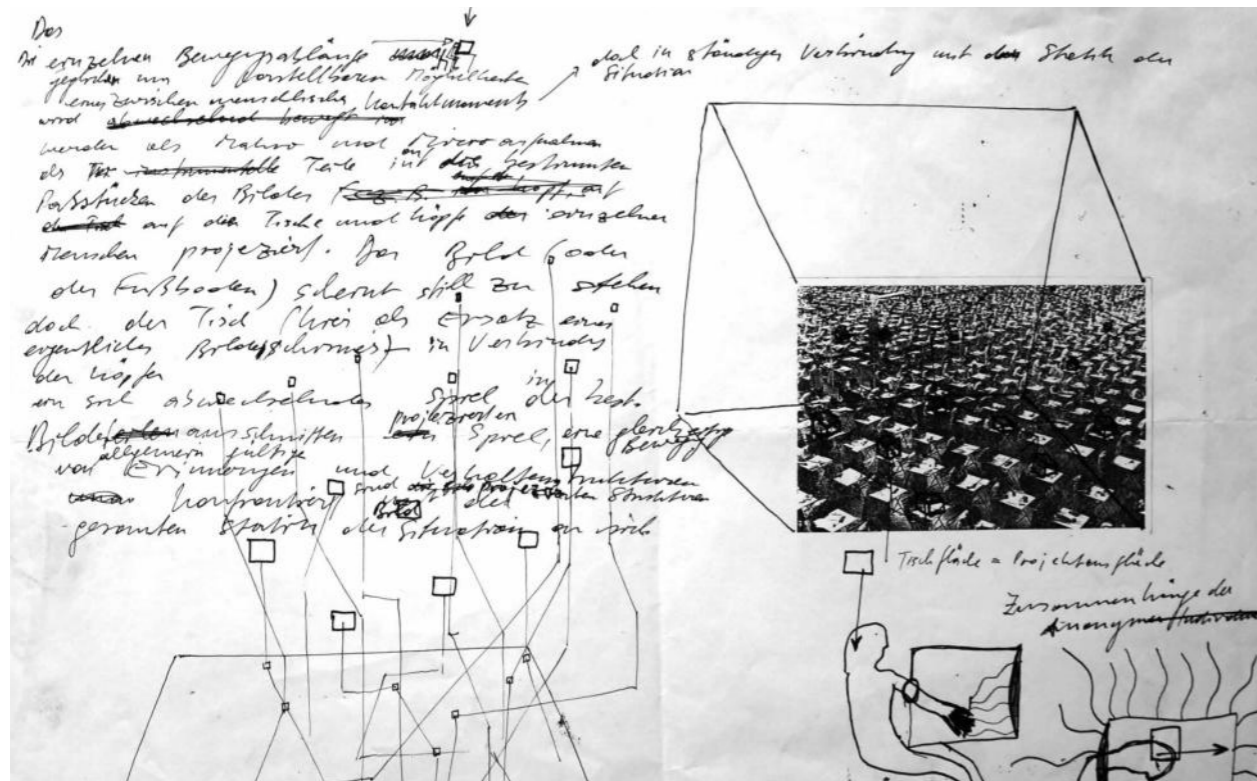 Das
Die einzelnen Bewegungsabläufe
vorstellbaren Möglichkeiten
eines zwischenmenschlichen Kontaktmoments
wird abwechselnd bewegt
werden als Makro und Microaufnahmen
als instrumentelle Teile in die bestimmten
Paßstücken des Bildes
auf den Tische und Köpfe der einzelnen
Menschen projeziert. Das Bild (oder
der Fußboden) scheint still zu stehen
doch der Tisch (hier als Ersatz eines
eigentlichen Bildschirmes) in Verbindung
der Köpfe
ein sich abwechselndes Spiel der best.
Bildausschnitten projezierten Spiel, eine gleichzeitige Bewegung
allgemein gültige
von Erinnerungen und Verhaltensstrukturen
Konfrontiert sind die Strukturen
Bild der
gesamten Statik der Situation an sich
doch in ständiger Verbindung mit der Statik der
Situation
Tischfläche = Projektionsfläche
Zusammenhänge der
Anonymen